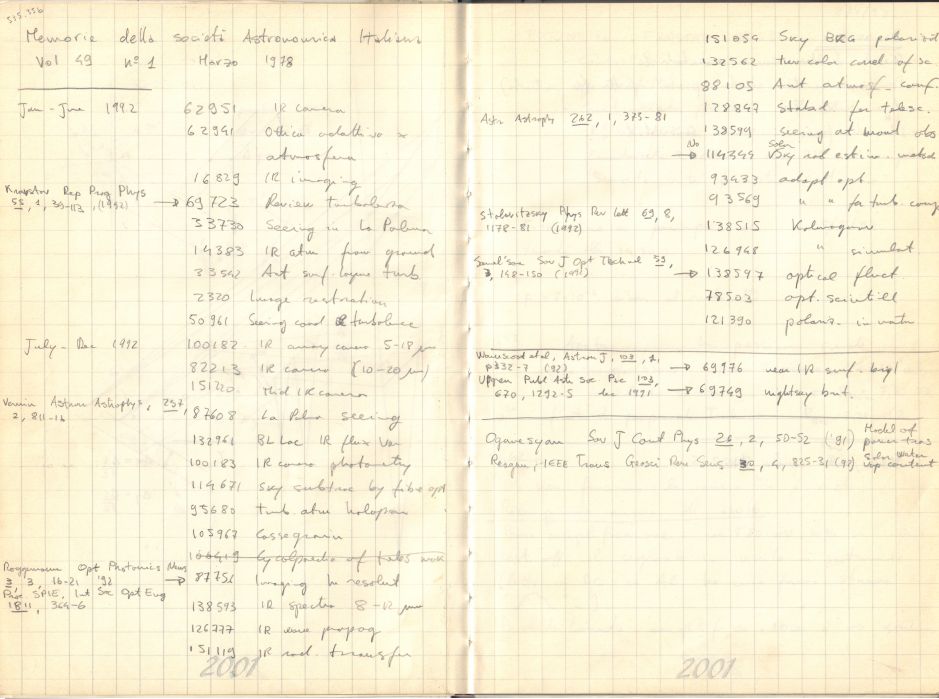 535.336
Memorie della società Astronomica Italiana
Vol 49 n° 1 Marzo 1978
Jan - June 1992 62951 IR camera
62941 Ottica adattiva x
atmosfera
16829 IR imaging
Rep Prog Phys
55, 1, 39-113, (1992) → 69723 Review turbulence
33730 Seeing in La Palma
14383 IR atm from ground
33542 Ant surf. layer turb
2320 Image restoration
50961 Seeing cond & turbulence
July - Dec 1992 100182 IR array camera 5-18 μm
82213 IR camera (10-20 μm)
151220 Mid IR camera
Vernin Astron Astrophys, 257,
2, 811-16 87608 La Palma seeing
132961 BL Lac IR flux Var
100183 IR camera photometry
114671 Sky subtrac by fibre opt
95680 turb atm hologram
105967 Cassegrain
100419 of
Roggemann Opt Photonics News
3, 3, 16-21 '92 → 87751 Imaging h resolut
Proc SPIE, Int Soc Opt Eng
1811, 364-6 138593 IR spectra 8-12 μm
126777 IR wave propag
151119 IR rad. transfer
2001
151059 Sky BKG polarizat
132562 two color cond of sc
88105 Ant atmosf. conf.
128847 Statist for telesc.
Astr Astroph 262, 1, 375-81
138599 seeing at mount obs
No Solar
→ 114349 Sky rad estim. method
93433 adapt opt
93569 " " for turb. comp
Phys Rev Lett 69, 8,
1178-81 (1992) 138515 Kolmogorov
126948 " simulat
Sov J Opt Technol 59,
3, 148-150 (1992) → 138597 optical fluct
78503 opt. scintill
121390 polariz. in water
Wainscoat et al, Astron J, 103, 1,
p332-7 (92) → 69976 near IR surf. brigt
Upgren Publ Astr Soc Pac 103,
670, 1292-5 dec 1991 → 69749 nightsky brit.
Oganesyan Sov J Cont Phys 26, 2, 50-52 ('91) Model of
Reagan, IEEE Trans Geosci Rem Sens 30, 4, 825-31 (92) Solar Water
vap content
2001